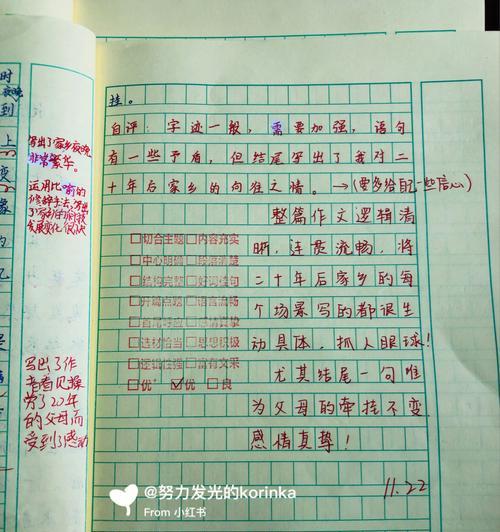 时
夜晚
到
上
变
象
写出了家乡夜晚
非常繁华。
运用比喻的
修辞手法,写出
了家乡的科技
发展变化很快
写出了作
者看见操
劳了20年
的父母而
受到了感动
挂。
自评:字迹一般,需要加强,语句
有一些矛盾,但结尾写出了我对二
十年后家乡的向往之情。→(要多给自己一些信心)
整篇作文逻辑清
晰,连贯流畅,将
二十年后家乡的每
个场景写的都很生
动具体,抓人眼球!
尤其结尾一句唯
为父母的牵挂不变
感情真挚!
11.22
□切合主题□内容充实
□中心明确□段落清楚
□结构完整□好词佳句
□开篇点题□语言流畅
□首尾呼应□感情真挚
□选材恰当□思想积极
□逻辑性强□富有文采
□优⁺ ☑优 □良
@努力发光的korinka
From 小红书